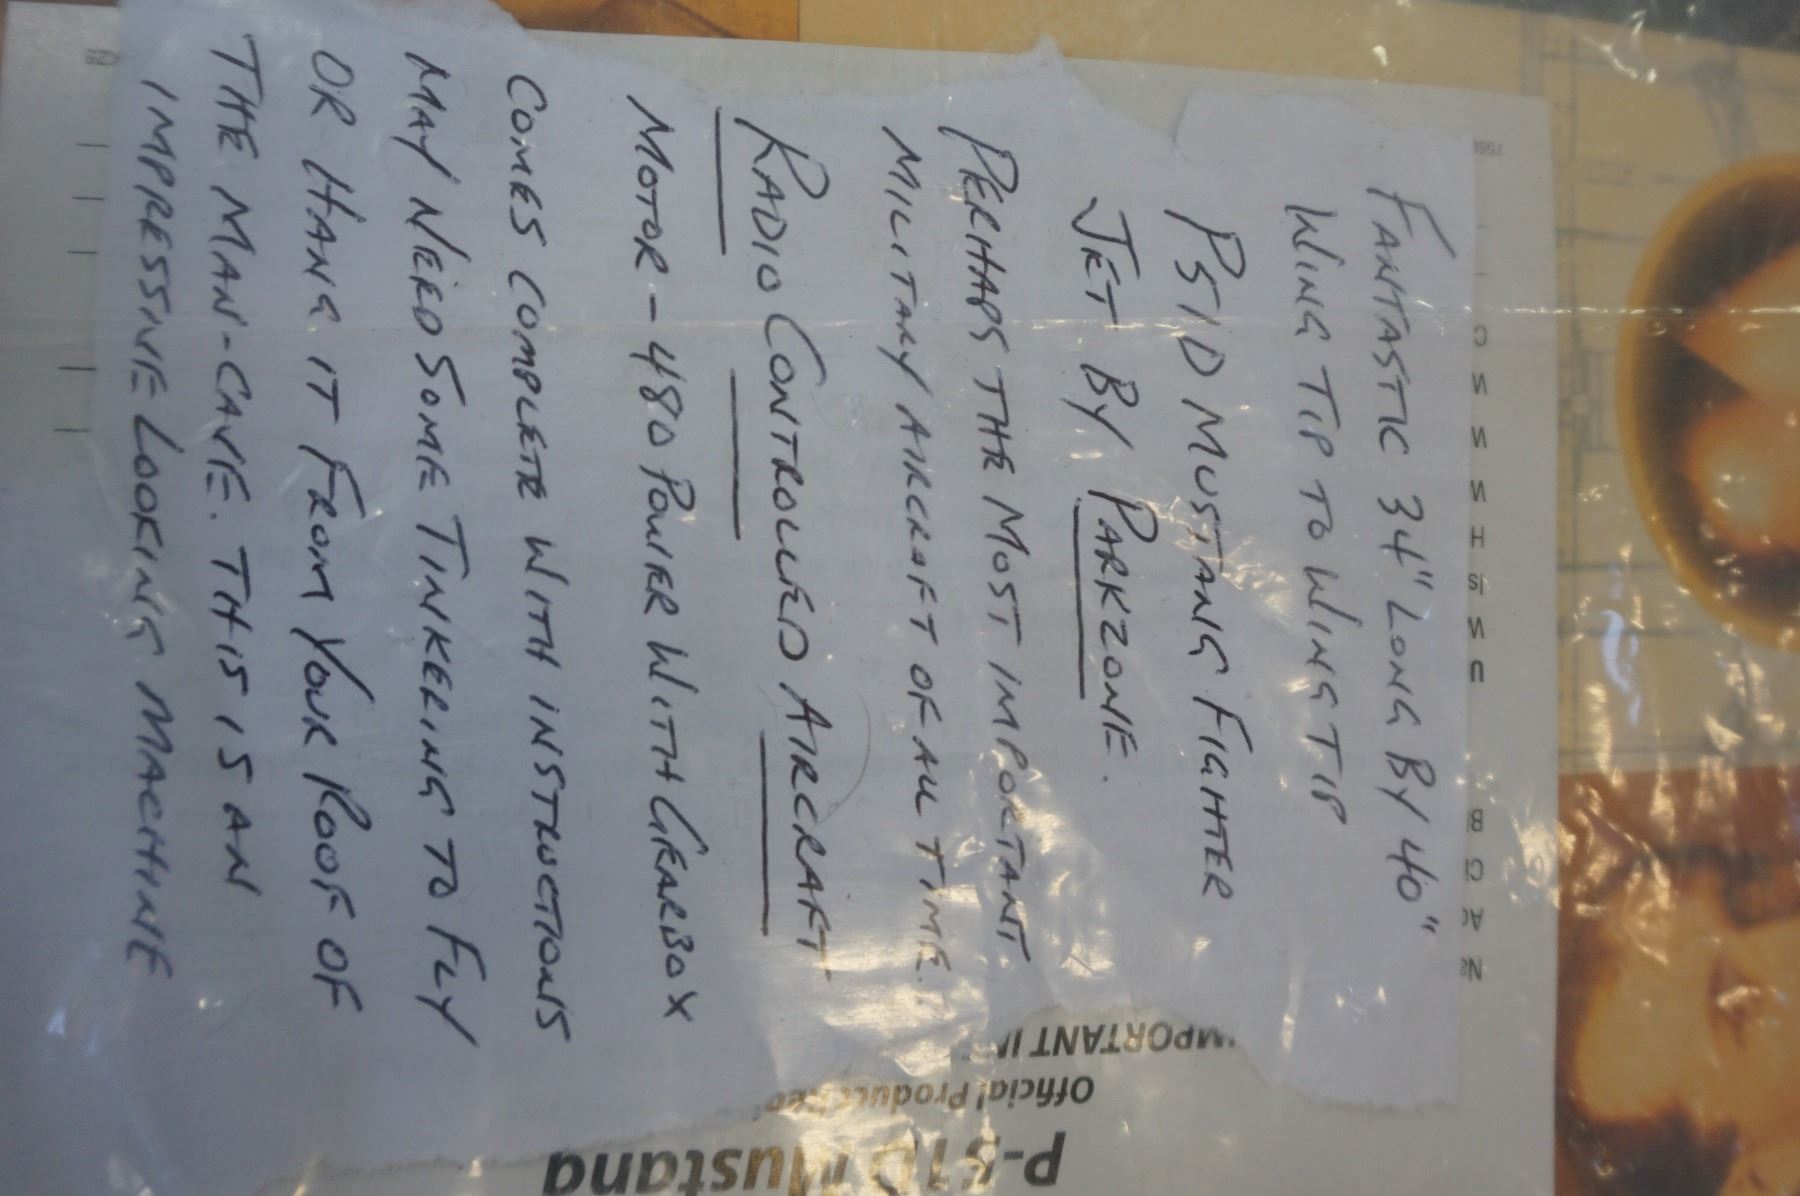 FANTASTIC 34" LONG BY 40"
WING TIP TO WING TIP
P51D MUSTANG FIGHTER
JET BY PARKZONE.
PERHAPS THE MOST IMPORTANT
MILITARY AIRCRAFT OF ALL TIME.
RADIO CONTROLLED AIRCRAFT
MOTOR - 480 POWER WITH GEARBOX
COMES COMPLETE WITH INSTRUCTIONS
MAY NEED SOME TINKERING TO FLY
OR HANG IT FROM YOUR ROOF OF
THE MAN-CAVE. THIS IS AN
IMPRESSIVE LOOKING MACHINE
P-51D Mustang
Official Product